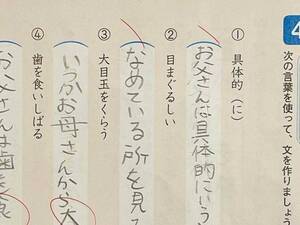 4
次の言葉を使って、文を作りましょう
① 具体的(に)
お父さんに具体的にいう
② 目まぐるしい
なめている所を見
③ 大目玉をくらう
いつかお母さんから大
④ 歯を食いしばる
お父さんは歯を食